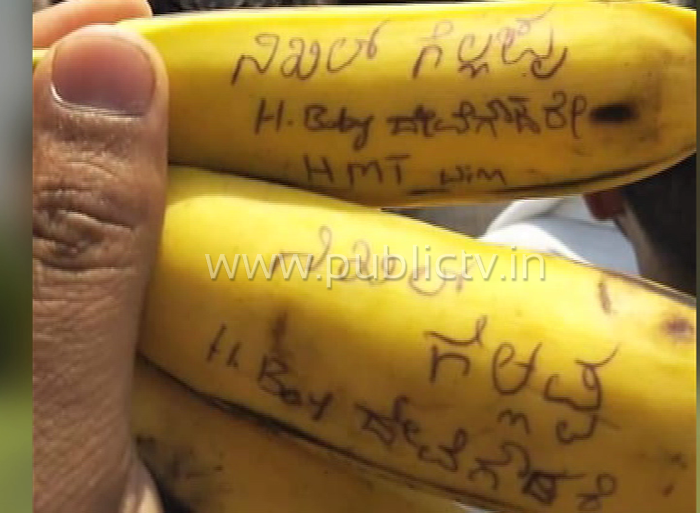 ನಿಖಿಲ್ ಗೆಲ್ಲಪ್ಪ
H. Baby ದೇವೇಗೌಡಕೆರೆ
HMT Win
www.publictv.in
ನಿಖಿಲ್
ಗೆಲ್ಲಪ್ಪ
H. Boy ದೇವೇಗೌಡಕೆರೆ